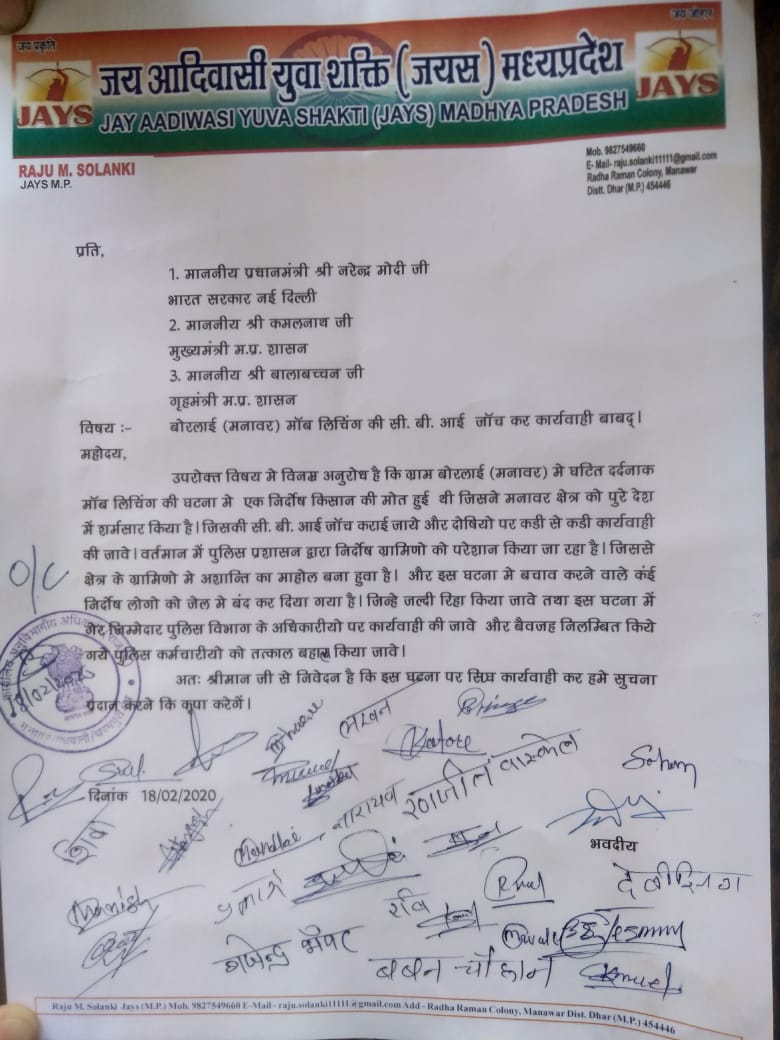 जय प्रकृति
जय जोहार
जय आदिवासी युवा शक्ति (जयस) मध्यप्रदेश
JAY AADIWASI YUVA SHAKTI (JAYS) MADHYA PRADESH
JAYS
JAYS
RAJU M. SOLANKI
JAYS M.P.
Mob. 9827549660
E- Mail- raju.solanki11111@gmail.com
Radha Raman Colony, Manawar
Distt. Dhar (M.P.) 454446
प्रति,
1. माननीय प्रधानमंत्री श्री नरेन्द्र मोदी जी
भारत सरकार नई दिल्ली
2. माननीय श्री कमलनाथ जी
मुख्यमंत्री म.प्र. शासन
3. माननीय श्री बालाबच्चन जी
गृहमंत्री म.प्र. शासन
विषय :- बोरलाई (मनावर) मॉब लिचिंग की सी. बी. आई जॉच कर कार्यवाही बाबद्।
महोदय,
उपरोक्त विषय मे विनम्र अनुरोध है कि ग्राम बोरलाई (मनावर) मे घटित दर्दनाक
मॉब लिचिंग की घटना मे एक निर्दोष किसान की मोत हुई थी जिसने मनावर क्षेत्र को पुरे देश
में शर्मसार किया है। जिसकी सी. बी. आई जॉच कराई जाये और दोषियो पर कडी से कडी कार्यवाही
की जावे। वर्तमान में पुलिस प्रशासन द्वारा निर्दोष ग्रामिणो को परेशान किया जा रहा है। जिससे
क्षेत्र के ग्रामिणो मे अशान्ति का माहोल बना हुवा है। और इस घटना मे बचाव करने वाले कंई
निर्दोष लोगो को जेल मे बंद कर दिया गया है। जिन्हे जल्दी रिहा किया जावे तथा इस घटना में
गेर जिम्मेदार पुलिस विभाग के अधिकारीयो पर कार्यवाही की जावे और बैवजह निलम्बित किये
गये पुलिस कर्मचारीयो को तत्काल बहाल किया जावे।
अतः श्रीमान जी से निवेदन है कि इस घटना पर सिघ्र कार्यवाही कर हमे सुचना
प्रदान करने कि कृपा करेगें।
O/C
लखन
Katore
रणजीत वास्केल
Sohan
दिनांक 18/02/2020
नारायण
Mandloi
भवदीय
Manish
रवि
Rahul
देवीसिंग
गजेन्द्र
बबन चौहान
Raju M. Solanki Jays (M.P.) Mob. 9827549660 E-Mail - raju.solanki11111@gmail.com Add - Radha Raman Colony, Manawar Dist. Dhar (M.P.) 454446